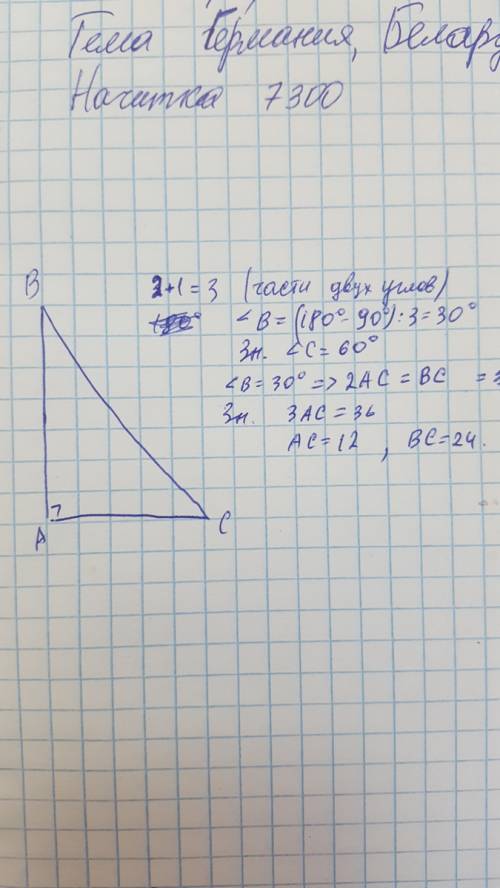 Тема Германия, Белару
Начитка 7300
B
2+1=3 (части двух углов)
∠B=(180°-90°):3=30°
Зн. ∠C=60°
∠B=30° => 2AC=BC =>
Зн. 3AC=36
AC=12, BC=24.
A
C